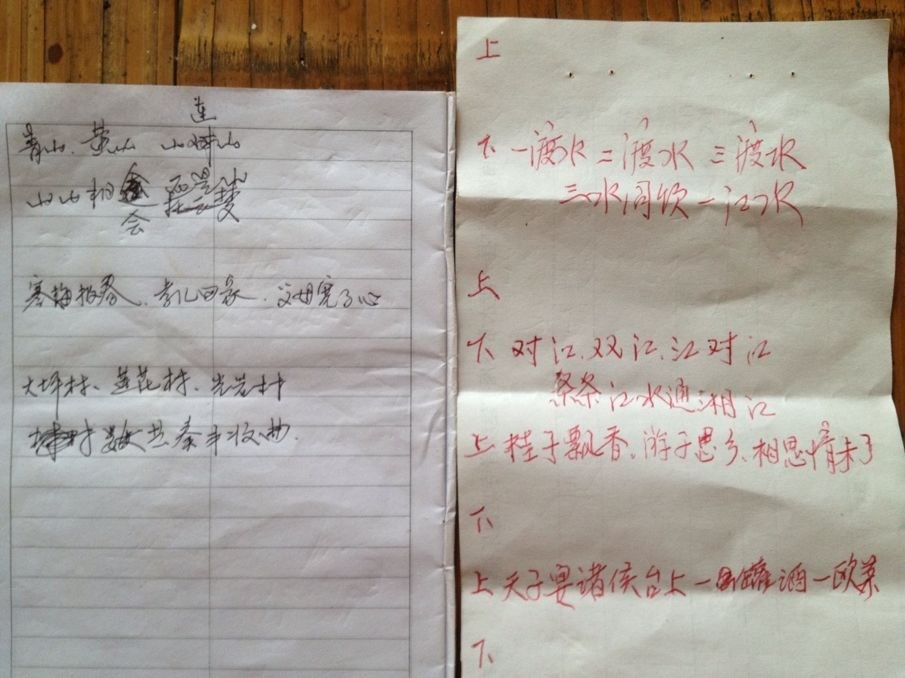 连
青山、黄山 山对山
山山相会
会
寒梅报春、孝儿回家、父母宽了心
大坪村、莲花村、岩岩村
村村数共奏丰收曲.
上
下 一渡水 二渡水 三渡水
三水同饮一江水
上
下 对江、双江、江对江
条条江水通湘江
上 桂子飘香、游子思乡、相思情未了
下
上 天子宴诸侯台上一罐酒一欧菜
下